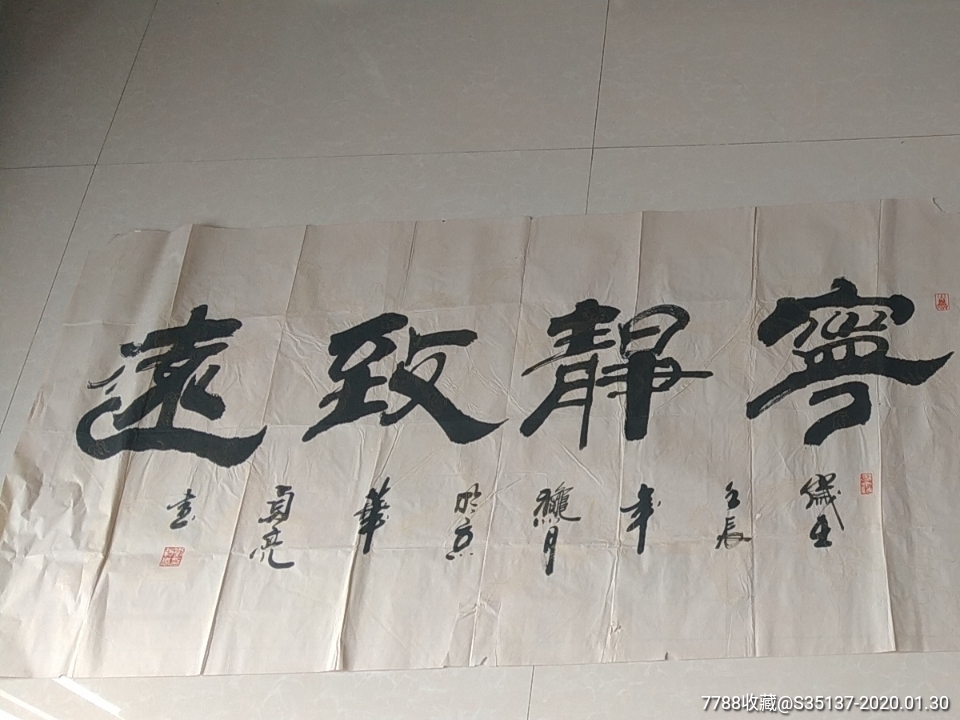 寧靜致遠
歲在壬辰年龝月於京華高亮書
7788收藏@S35137-2020.01.30